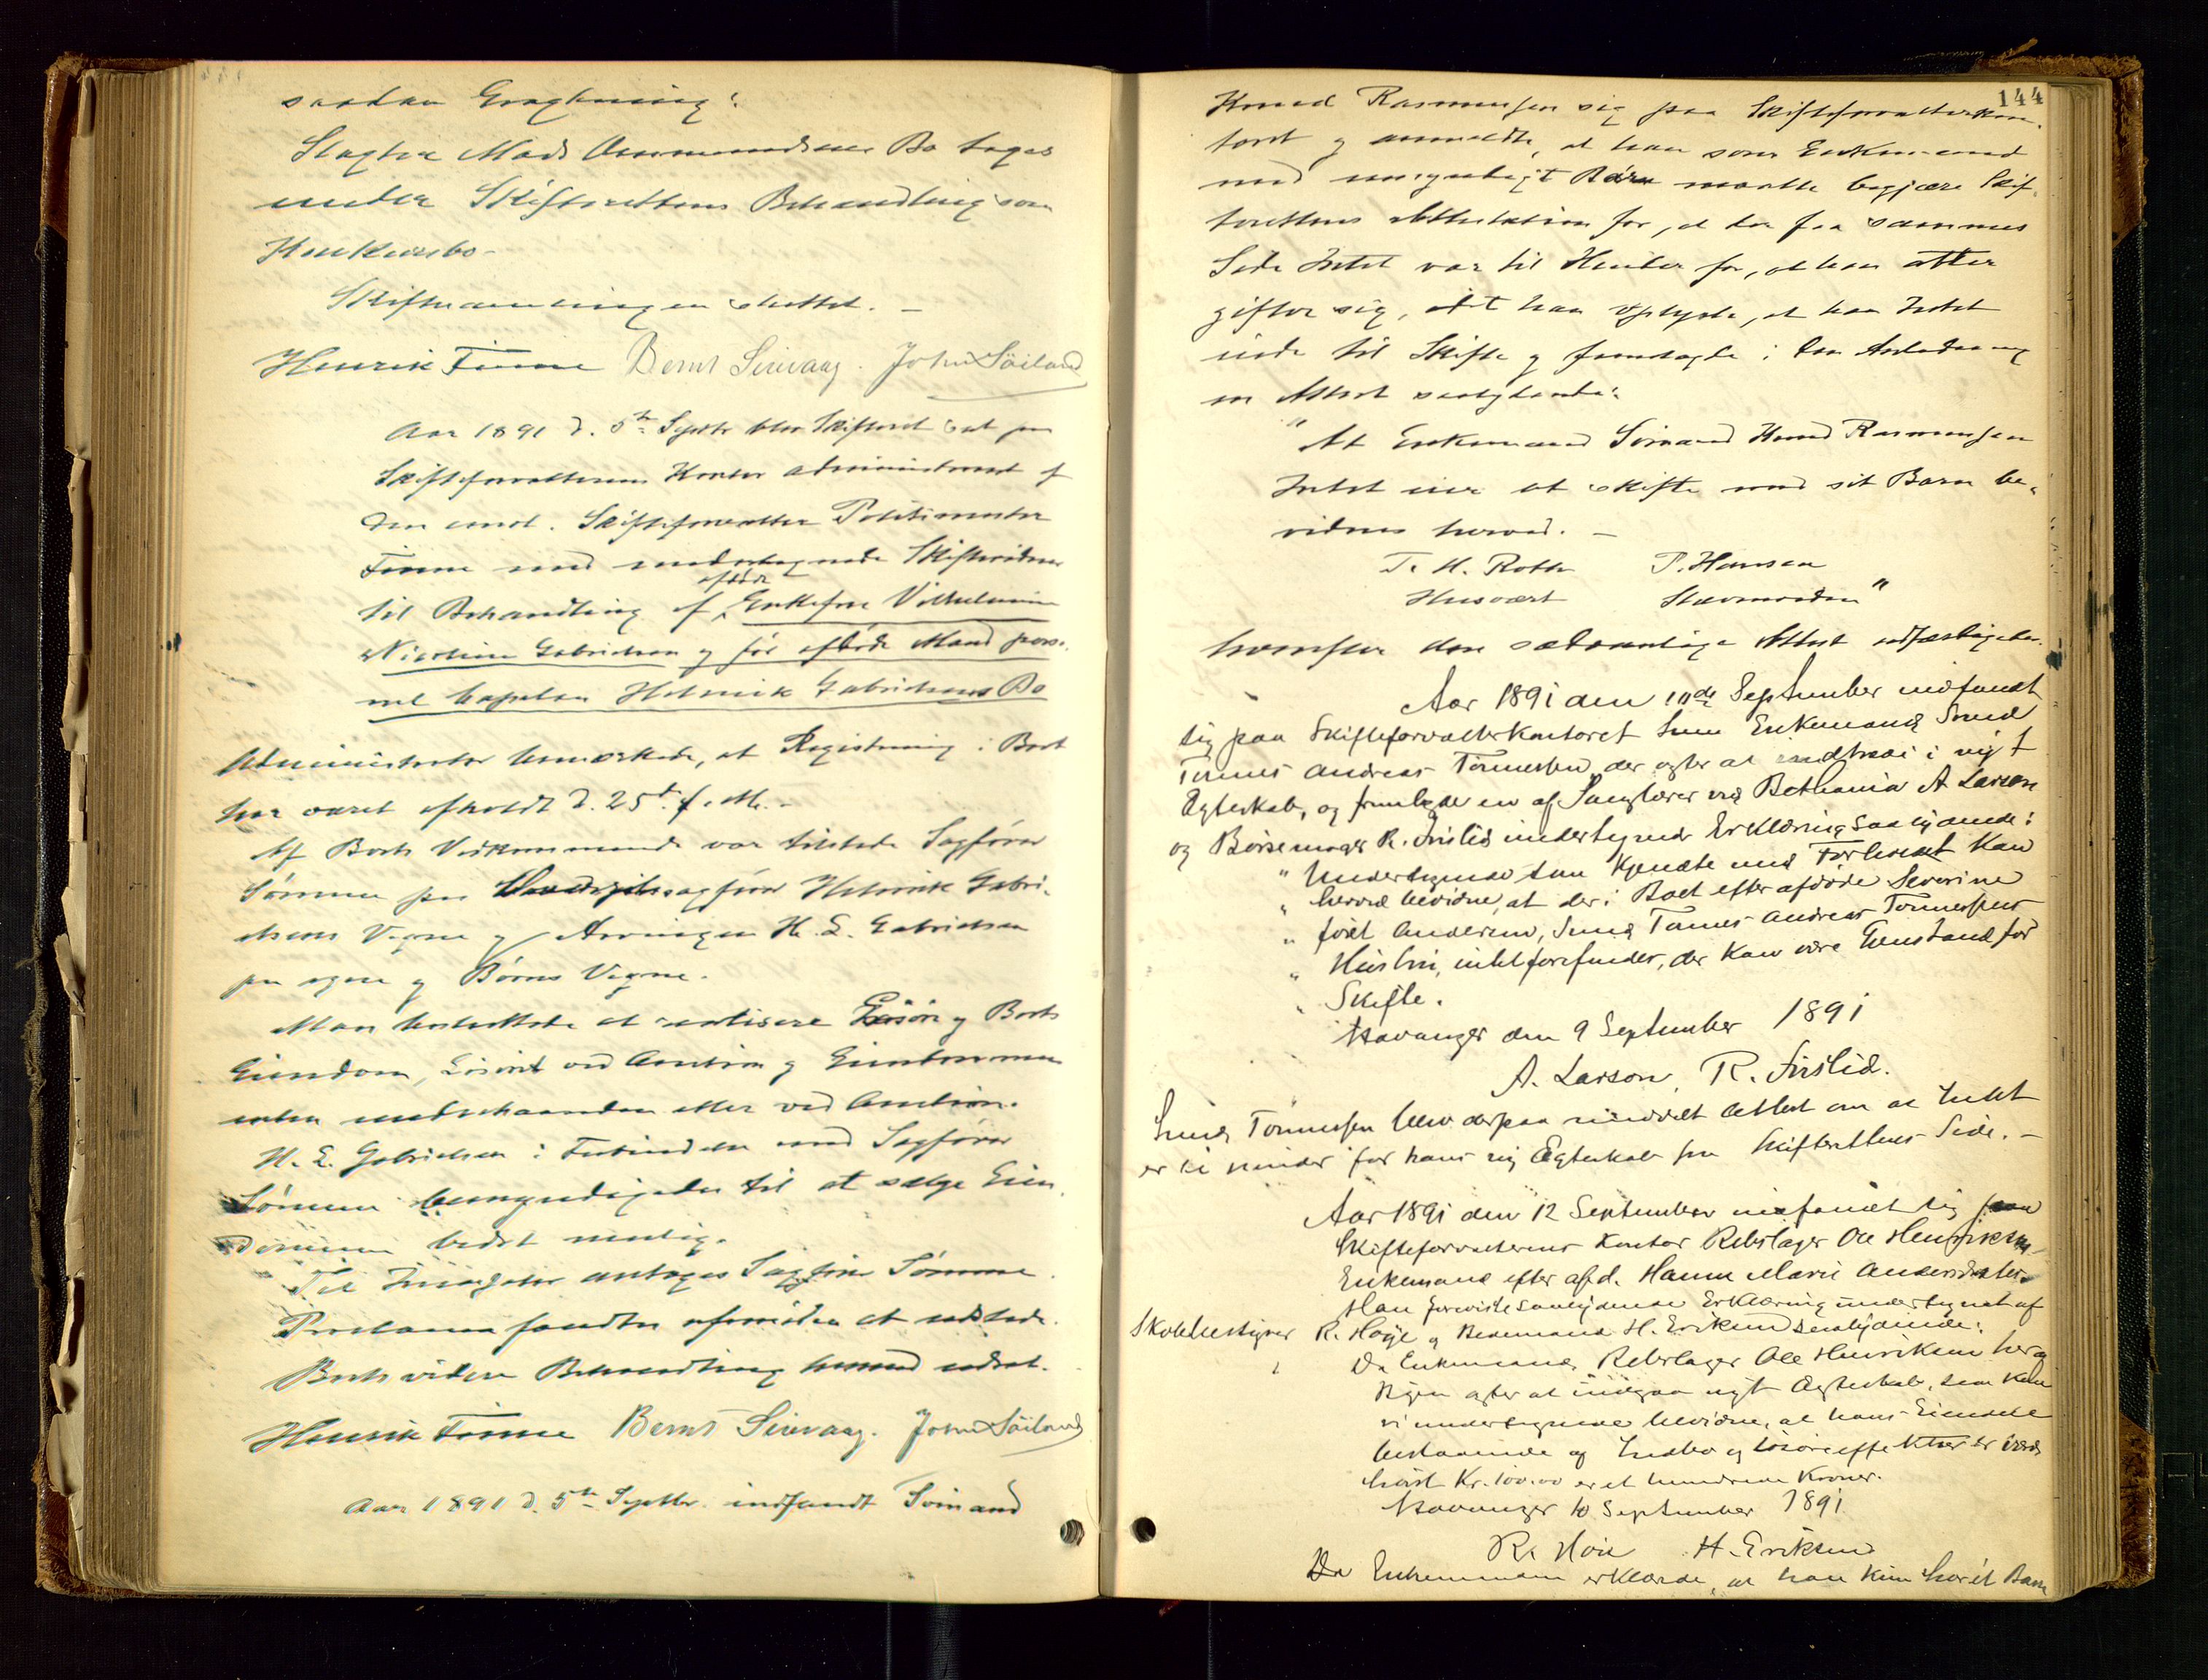 saadan Eragtning:
Slagter Mads Ommundsens Bo tages
under Skifterettens Behandling som
Konkursbo.
Skiftesamlingen sluttet. –
Henrik Finne Bernt Sirevaag. John Söiland
Aar 1891 d. 5te Septbr blev Skifteret sat paa
Skifteforvalterens Kontor administreret af
den const. Skifteforvalter Politimester
Finne med undertegnede Skiftevidner
til Behandling af afdøde Enkefru Vilhelmine
Nicoline Gabrielsen og før afdøde Mand
Kaptein Helmik Gabrielsens Bo
Administrator bemærkede, at Registrering i Boet
har været afholdt d. 25de f. M. –
Af Boets Vedkommende var tilstede Sagfører
Sømme paa sagfører Helmik Gabri-
elsens Vegne og Arvingen H. E. Gabrielsen
paa egne og Børns Vegne.
Man besluttede at realisere Løsøre og Boets
Eiendom, Løsøret ved Auktion og Eiendommen
enten underhaanden eller ved Auktion.
H. E. Gabrielsen i Forbindelse med Sagfører
Sømme bemyndigedes til at sælge Eien-
dommen bedst mulig.
Til Incassator antages Sagfører Sømme.
Proclama fandtes ufornøden at udstede.
Boets videre Behandling hermed udsat.
Henrik Finne Bernt Sirevaag. John Söiland
Aar 1891 d. 5te Septbr. indfandt Sømand
144
Knud Rasmussen sig paa Skifteforvalterkon-
toret og anmeldte, at han som Enkemand
med umyndigt Barn maatte begjære Skif-
terettens Attestation for, at der fra sammes
Side Intet var til Hinder for, at han atter
gifter sig, idet han oplyste, at han Intet
eiede til Skifte og fremlagde i den Anledning
en Attest saalydende:
"At Enkemand Sømand Knud Rasmussen
Intet eier at skifte med sit Barn be-
vidnes herved. –
T. H. Roth P. Hansen
Husvært Stævnevidne"
hvorefter den sædvanlige Attest udfærdigedes.
Aar 1891 den 10de September indfandt
sig paa Skifteforvalterkontoret Smed Enkemand Smed
Tønnes Andreas Tønnessen der agter at indtræde i nyt
Ægteskab, og fremlagde en af Sanglærer ved Bethania A Larson
og Børsemager R. Frislid undertegnede Erklæring saalydende:
" Undertegnede som kjendte med Forholdet kan
" herved bevidne, at der i Boet efter afdøde Severine
" født Andersen, Smed Tønnes Andreas Tønnessens
" Hustru, intet forefindes, der kan være Gjenstand for
" Skifte.
Stavanger den 9 September 1891
A. Larson, R. Frislid.
Smed Tønnessen blev derpaa meddelt Attest om at Intet
er til Hinder for hans ny Ægteskab fra Skifterettens Side. –
Aar 1891 den 12 September indfandt sig paa
Skifteforvalterens Kontor Rebslager Ole Henriksen
Enkemand efter afd. Hanne Marie Andersdatter.
Han foreviste saalydende Erklæring undertegnet af
Skolebestyrer R. Høie og Bedemand H. Eriksen saalydende:
Da Enkemand, Rebslager Ole Henriksen her af
Byen agter at indgaa nyt Ægteskab, saa kan
vi undertegnede bevidne, at hans Eiendele
bestaaende af Indbo og Løsøreeffekter er værd
høist Kr. 100.00 er et hundrede Kroner.
Stavanger 10 September 1891
R. Høie H. Eriksen
Da Enkemanden erklærede, at han kun har et Barn